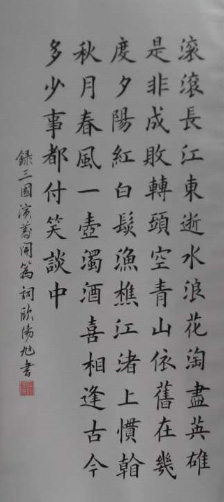 滾滾長江東逝水浪花淘盡英雄
是非成敗轉頭空青山依舊在幾
度夕陽紅白髮漁樵江渚上慣
秋月春風一壺濁酒喜相逢古今
多少事都付笑談中
錄三國演義開篇詞欧陽旭書